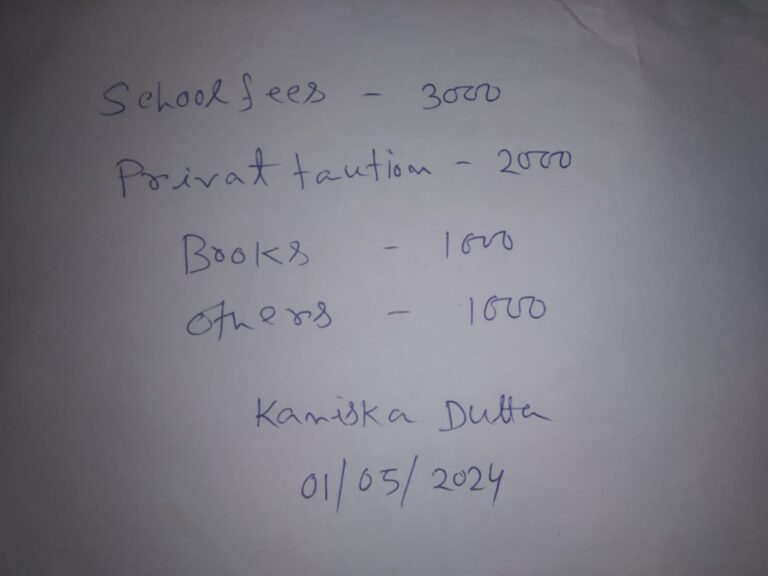 School fees - 3000
Privat taution - 2000
Books - 1000
others - 1000
Kaniska Dutta
01/05/2024